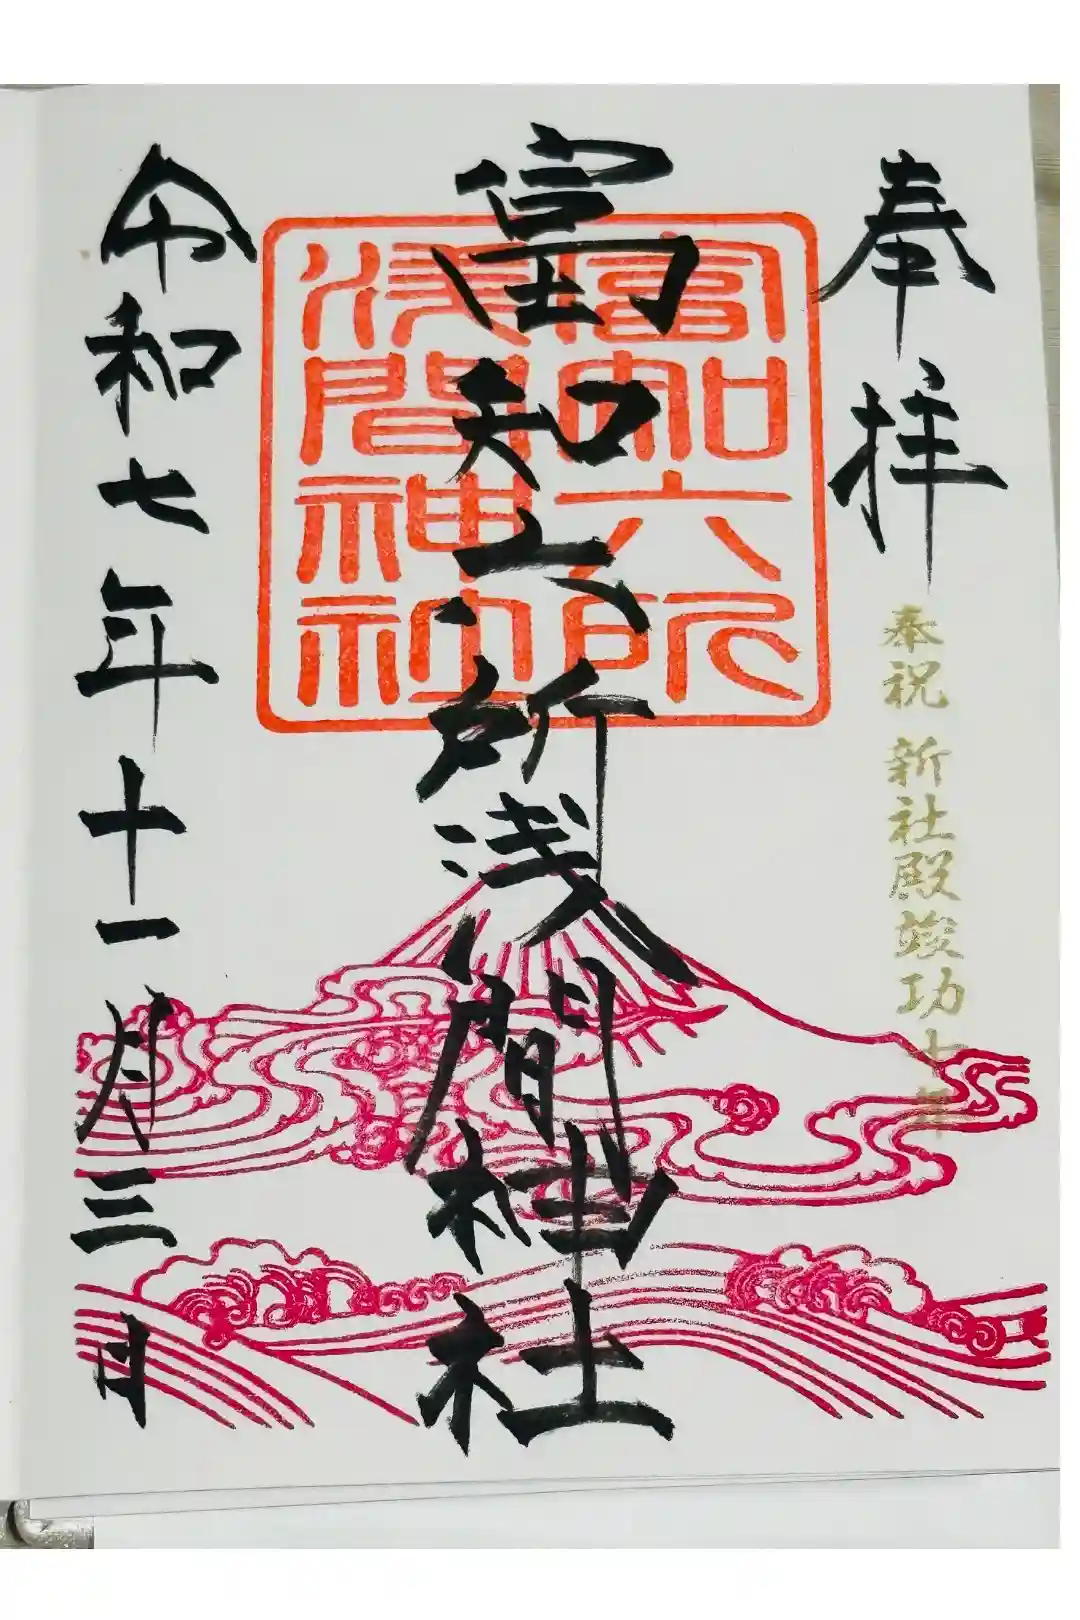 奉拝
奉祝 新社殿竣功十年
富知六所浅間神社
富知六所
浅間神社
令和七年十一月三日